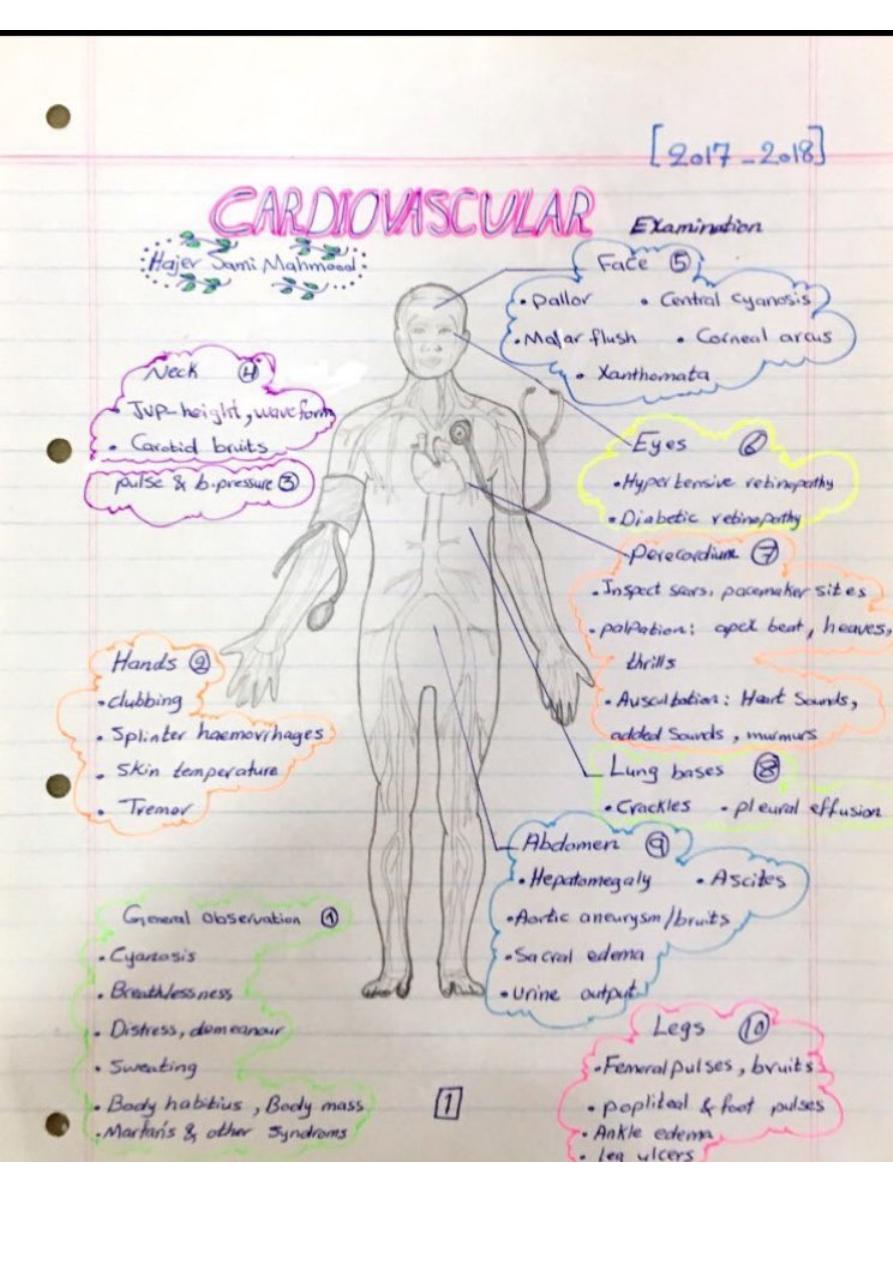 [2017-2018]
CARDIOVASCULAR
Examination
Hajer Sami Mahmood
Face 5
• pallor • Central cyanosis
• Malar flush • Corneal arcus
• Xanthomata
Neck 4
• Jvp-height, wave form
• Carotid bruits
pulse & b.pressure 3
Eyes 6
• Hypertensive retinopathy
• Diabetic retinopathy
Perecordium 7
• Inspect scars, pacemaker sites
• palpation: apex beat, heaves,
thrills
• Auscultation: Heart Sounds,
added Sounds, murmurs
Hands 2
• clubbing
• Splinter haemorrhages
• Skin temperature
• Tremor
Lung bases 8
• Crackles • pleural effusion
Abdomen 9
• Hepatomegaly • Ascites
• Aortic aneurysm/bruits
• Sacral edema
• urine output
General observation 1
• Cyanosis
• Breathlessness
• Distress, demeanour
• Sweating
• Body habitius, Body mass
• Marfan's & other Syndroms
Legs 10
• Femeral pulses, bruits
• popliteal & foot pulses
• Ankle edema
• leg ulcers
1